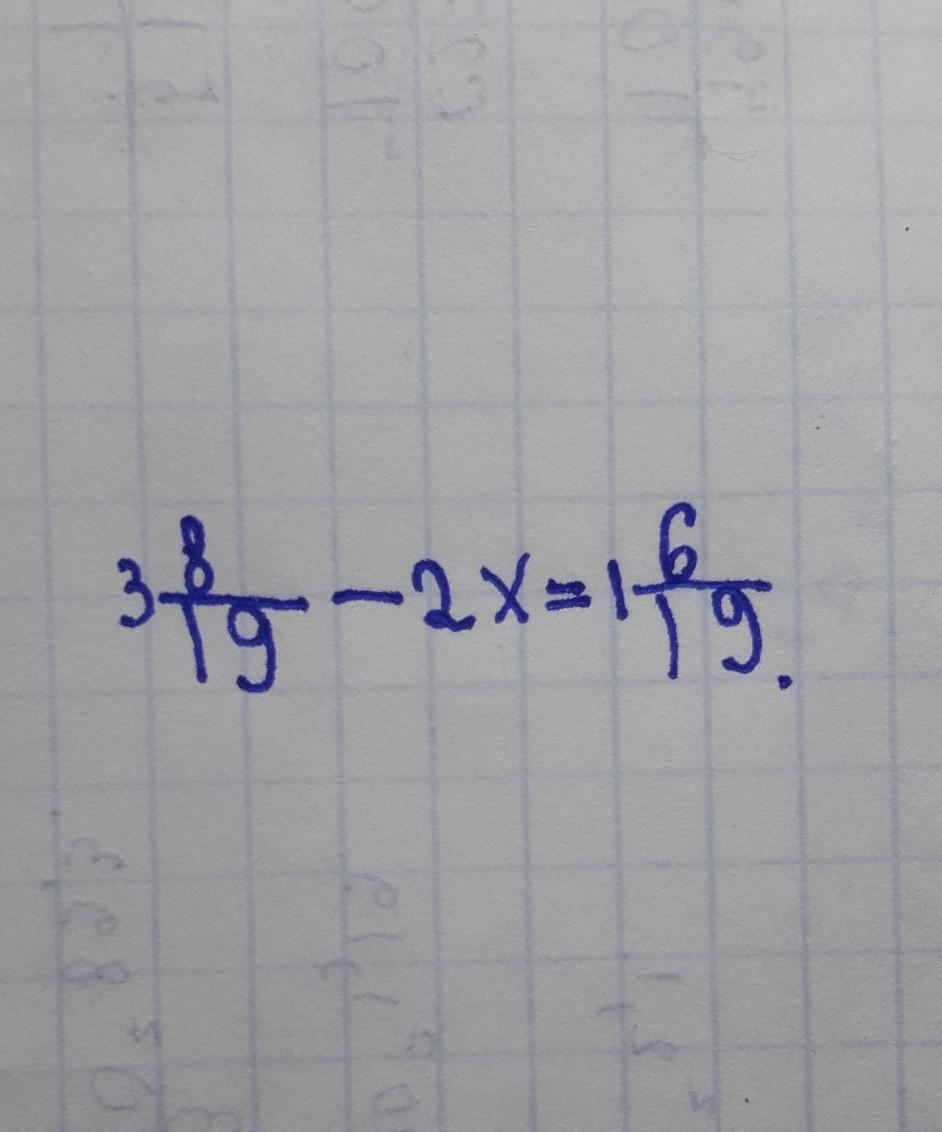 3 8/19 - 2x = 1 6/19.